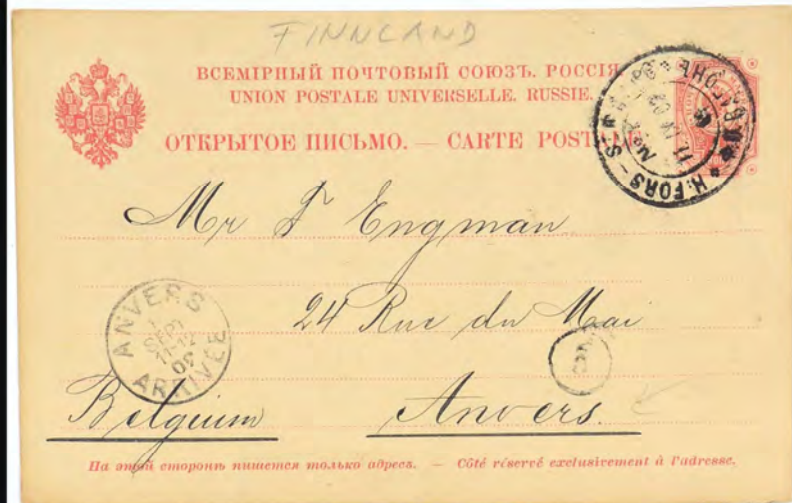 FINNLAND
ВСЕМІРНЫЙ ПОЧТОВЫЙ СОЮЗЪ. РОССІЯ
UNION POSTALE UNIVERSELLE. RUSSIE.
ОТКРЫТОЕ ПИСЬМО. — CARTE POST
H:FORS - S:
Mr F Engman
24 Rue du Mai
ANVERS
SEPT
11-12
ARRIVÉE
Belgium Anvers.
На этой сторонѣ пишется только адресъ. — Côté réservé exclusivement à l'adresse.